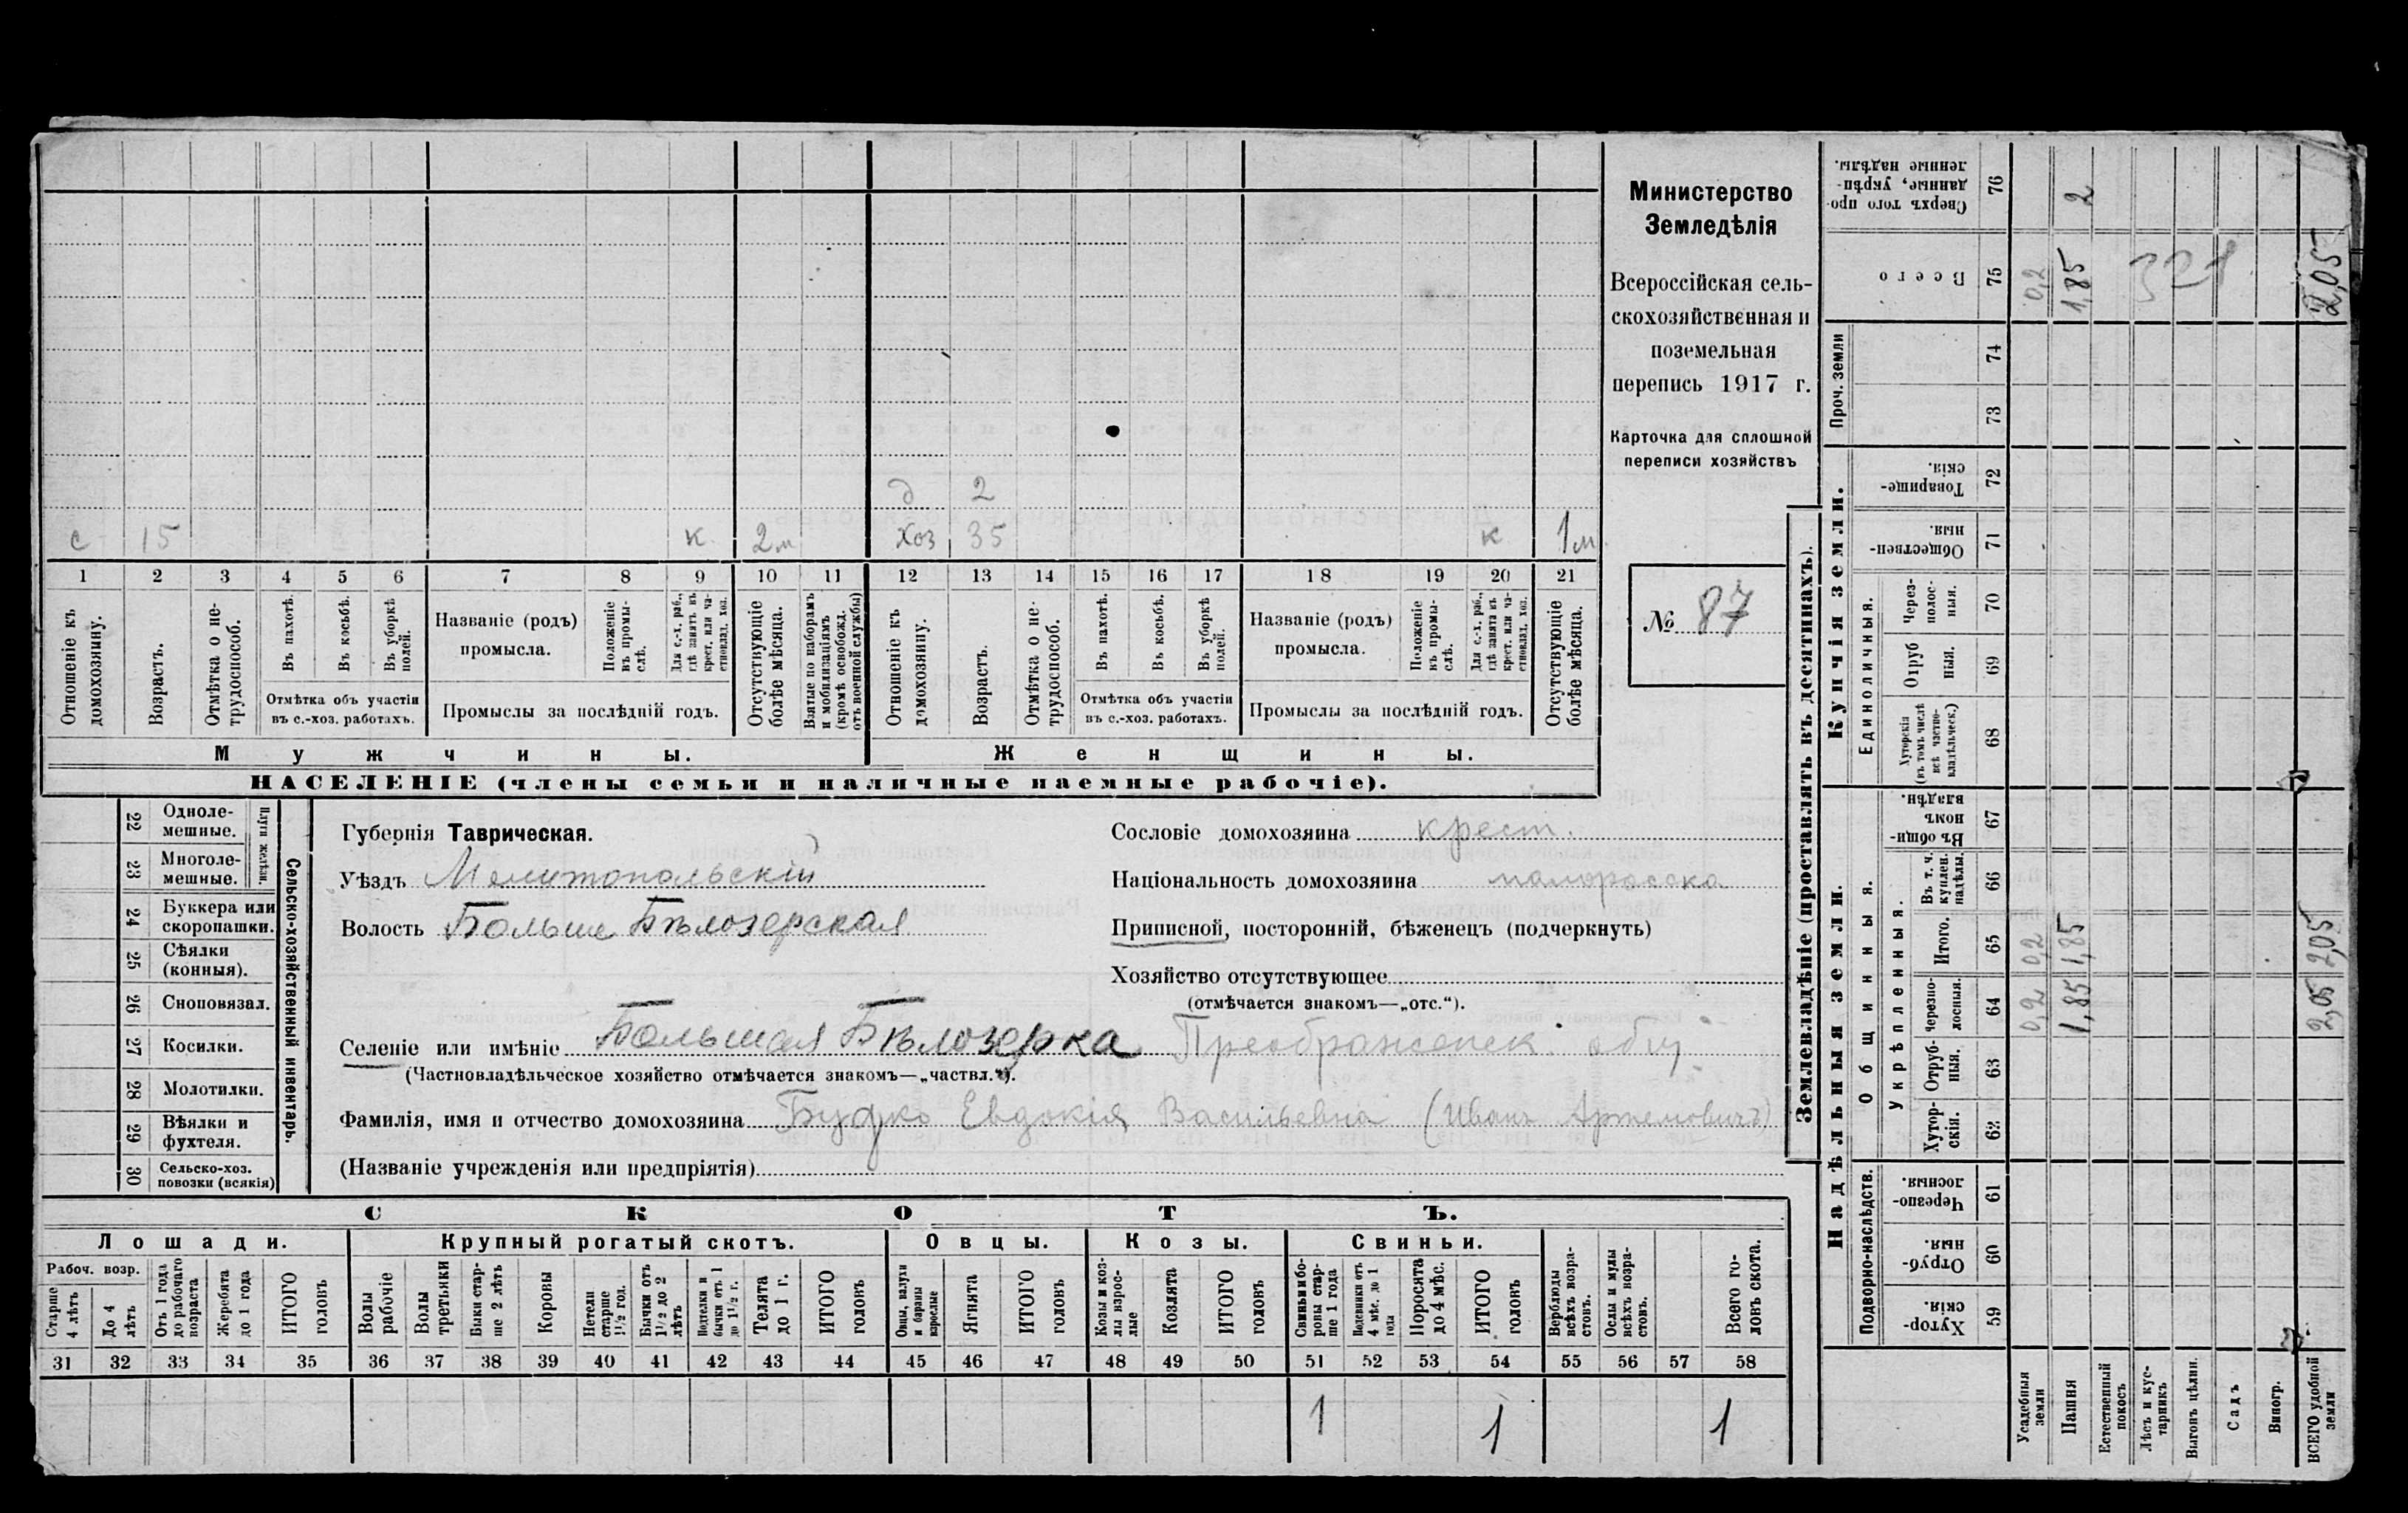 д 2
с 15 к 2м хоз 35 к 1м
1 2 3 4 5 6 7 8 9 10 11 12 13 14 15 16 17 18 19 20 21
Отношеніе къ домохозяину.
Возрастъ.
Отмѣтка о не-
трудоспособ.
Въ пахотѣ.
Въ косьбѣ.
Въ уборкѣ полей.
Отмѣтка объ участіи
въ с.-хоз. работахъ.
Названіе (родъ)
промысла.
Положеніе
въ промы-
слѣ.
Для с.-х. раб.,
гдѣ занятъ въ
крест. или ча-
стновлад. хоз.
Промыслы за послѣдній годъ.
Отсутствующіе
болѣе мѣсяца.
Взятые по наборамъ
и мобилизаціямъ
(кромѣ освобожд.
отъ военной службы)
Отношеніе къ
домохозяину.
Возрастъ.
Отмѣтка о не-
трудоспособ.
Въ пахотѣ.
Въ косьбѣ.
Въ уборкѣ
полей.
Отмѣтка объ участіи
въ с.-хоз. работахъ.
Названіе (родъ)
промысла.
Положеніе
въ промы-
слѣ.
Для с.-х. раб.,
гдѣ занята въ
крест. или ча-
стновлад. хоз.
Промыслы за послѣдній годъ.
Отсутствующіе
болѣе мѣсяца.
Мужчины. Женщины.
НАСЕЛЕНІЕ (члены семьи и наличные наемные рабочіе).
Министерство
Земледѣлія
Всероссійская сель-
скохозяйственная и
поземельная
перепись 1917 г.
Карточка для сплошной
переписи хозяйствъ
№ 87
22 Одноле-
мешные.
23 Многоле-
мешные.
Плуги желѣзн.
24 Буккера или
скоропашки.
25 Сѣялки
(конныя).
26 Сноповязал.
27 Косилки.
28 Молотилки.
29 Вѣялки и
фухтеля.
30 Сельско-хоз.
повозки (всякія)
Сельско-хозяйственный инвентарь.
Губернія Таврическая.
Уѣздъ Мелитопольскій
Волость Больше Бѣлозерская
Сословіе домохозяина крест.
Національность домохозяина малоросска
Приписной, посторонній, бѣженецъ (подчеркнуть)
Хозяйство отсутствующее
(отмѣчается знакомъ—„отс.“).
Селеніе или имѣніе Большая Бѣлозерка Преображенск. общ.
(Частновладѣльческое хозяйство отмѣчается знакомъ—„частвл.“).
Фамилія, имя и отчество домохозяина Евдокія Васильевна (Иванъ Артемовичъ)
(Названіе учрежденія или предпріятія)
СКОТЪ.
Лошади. Крупный рогатый скотъ. Овцы. Козы. Свиньи.
Рабоч. возр.
Старше
4 лѣтъ
До 4
лѣтъ
Отъ 1 года
до рабочаго
возраста
Жеребята
до 1 года
ИТОГО
головъ
Волы
рабочіе
Волы
третьяки
Быки стар-
ше 2 лѣтъ
Коровы
Нетели
старше
1½ год.
Бычки отъ
1½ до 2
лѣтъ
Подтелки и
бычки отъ 1
до 1½ г.
Телята
до 1 г.
ИТОГО
головъ
Овцы, валухи
и бараны
взрослые
Ягнята
ИТОГО
головъ
Козы и коз-
лы взрос-
лые
Козлята
ИТОГО
головъ
Свиньи и бо-
ровы стар-
ше 1 года
Подсвинки отъ
4 мѣс. до 1
года
Поросята
до 4 мѣс.
ИТОГО
головъ
Верблюды
всѣхъ возра-
стовъ.
Ослы и мулы
всѣхъ возра-
стовъ.
Всего го-
ловъ скота.
31 32 33 34 35 36 37 38 39 40 41 42 43 44 45 46 47 48 49 50 51 52 53 54 55 56 57 58
1 1 1
Землевладѣніе (проставлять въ десятинахъ).
Надѣльныя земли. Купчія земли. Проч. земли
Подворно-наслѣдств. Общинныя. Укрѣпленныя. Единоличныя.
Хутор-
скія. 59
Отруб-
ныя. 60
Черезпо-
лосныя. 61
Хутор-
скія. 62
Отруб-
ныя. 63
Черезпо-
лосныя. 64
Итого. 65
Въ т. ч.
куплен.
надѣлы. 66
Въ общи-
номъ
владѣн. 67
Хуторскія
(въ томъ числѣ
всѣ частно-
владѣльческ.) 68
Отруб
ныя. 69
Через-
полос-
ныя. 70
Обществен-
ныя. 71
Товарище-
скія. 72
73
74
Всего 75
Сверхъ того про-
данные, укрѣп-
ленные надѣлы. 76
Усадебныя
земли 0,2 0,2 0,2
Пашня 1,85 1,85 1,85 2
Естественный
покосъ
Лѣсъ и кус-
тарникъ
Выгонъ цѣлин.
Садъ
Виногр.
ВСЕГО удобной
земли 2,05 2,05 2,05
321